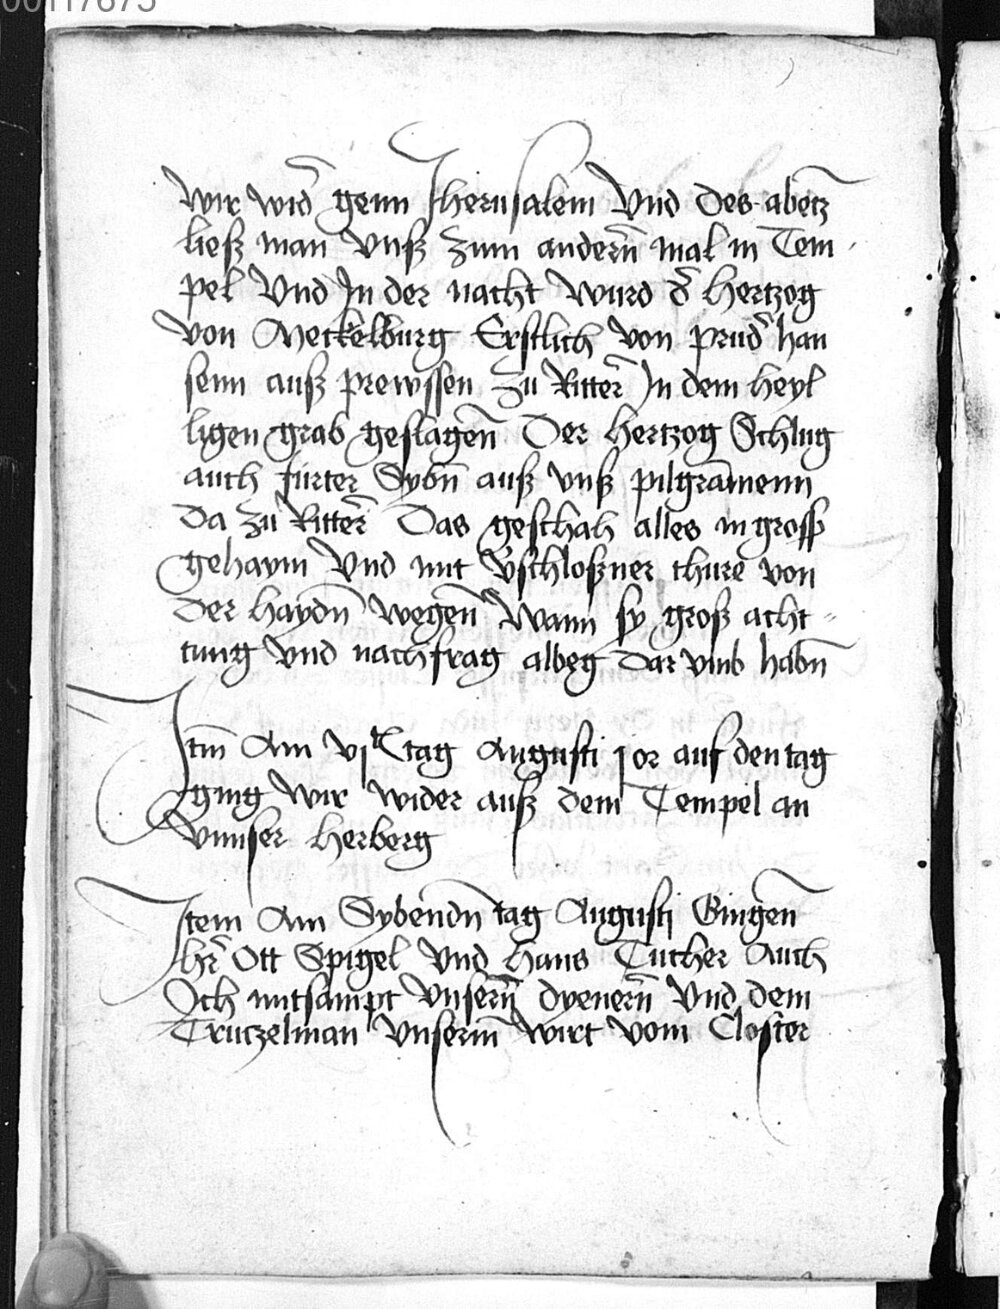 00117675
wir wid̄ genn Jherusalem Vnd des abetz
ließ man vnß zum andern̄ mal in Tem
pel Vnd In der nacht wurd d̄ hertzog
von Meckelburg Erstlich von prud̄ han
senn auß prewssen zu Ritter̄ In dem heyl
ligen grab geslagen̄ Der hertzog Schlug
auch furter Sybn̄ auß vnß pilgramenn
Da zu Ritter̄ Das geschah alles in gross
gehaym Vnd mit v̄schloßner thure von
der haydn̄ wegen̄ Wann sy groß acht
tung vnd nachfrag albeg dar vmb habn̄
Itm̄ Am vj tag Augusti vor auf den tag
ging wir wider auß dem Tempel an
vnnser herberg
Item Am Sybendn̄ tag Augusti Gingen̄
Hr̄ Ott Spigel vnd Hans Tucher Auch
Ich mitsampt vnsern̄ dyenern̄ Vnd dem
Trutzelman vnserm wirt vom Closter